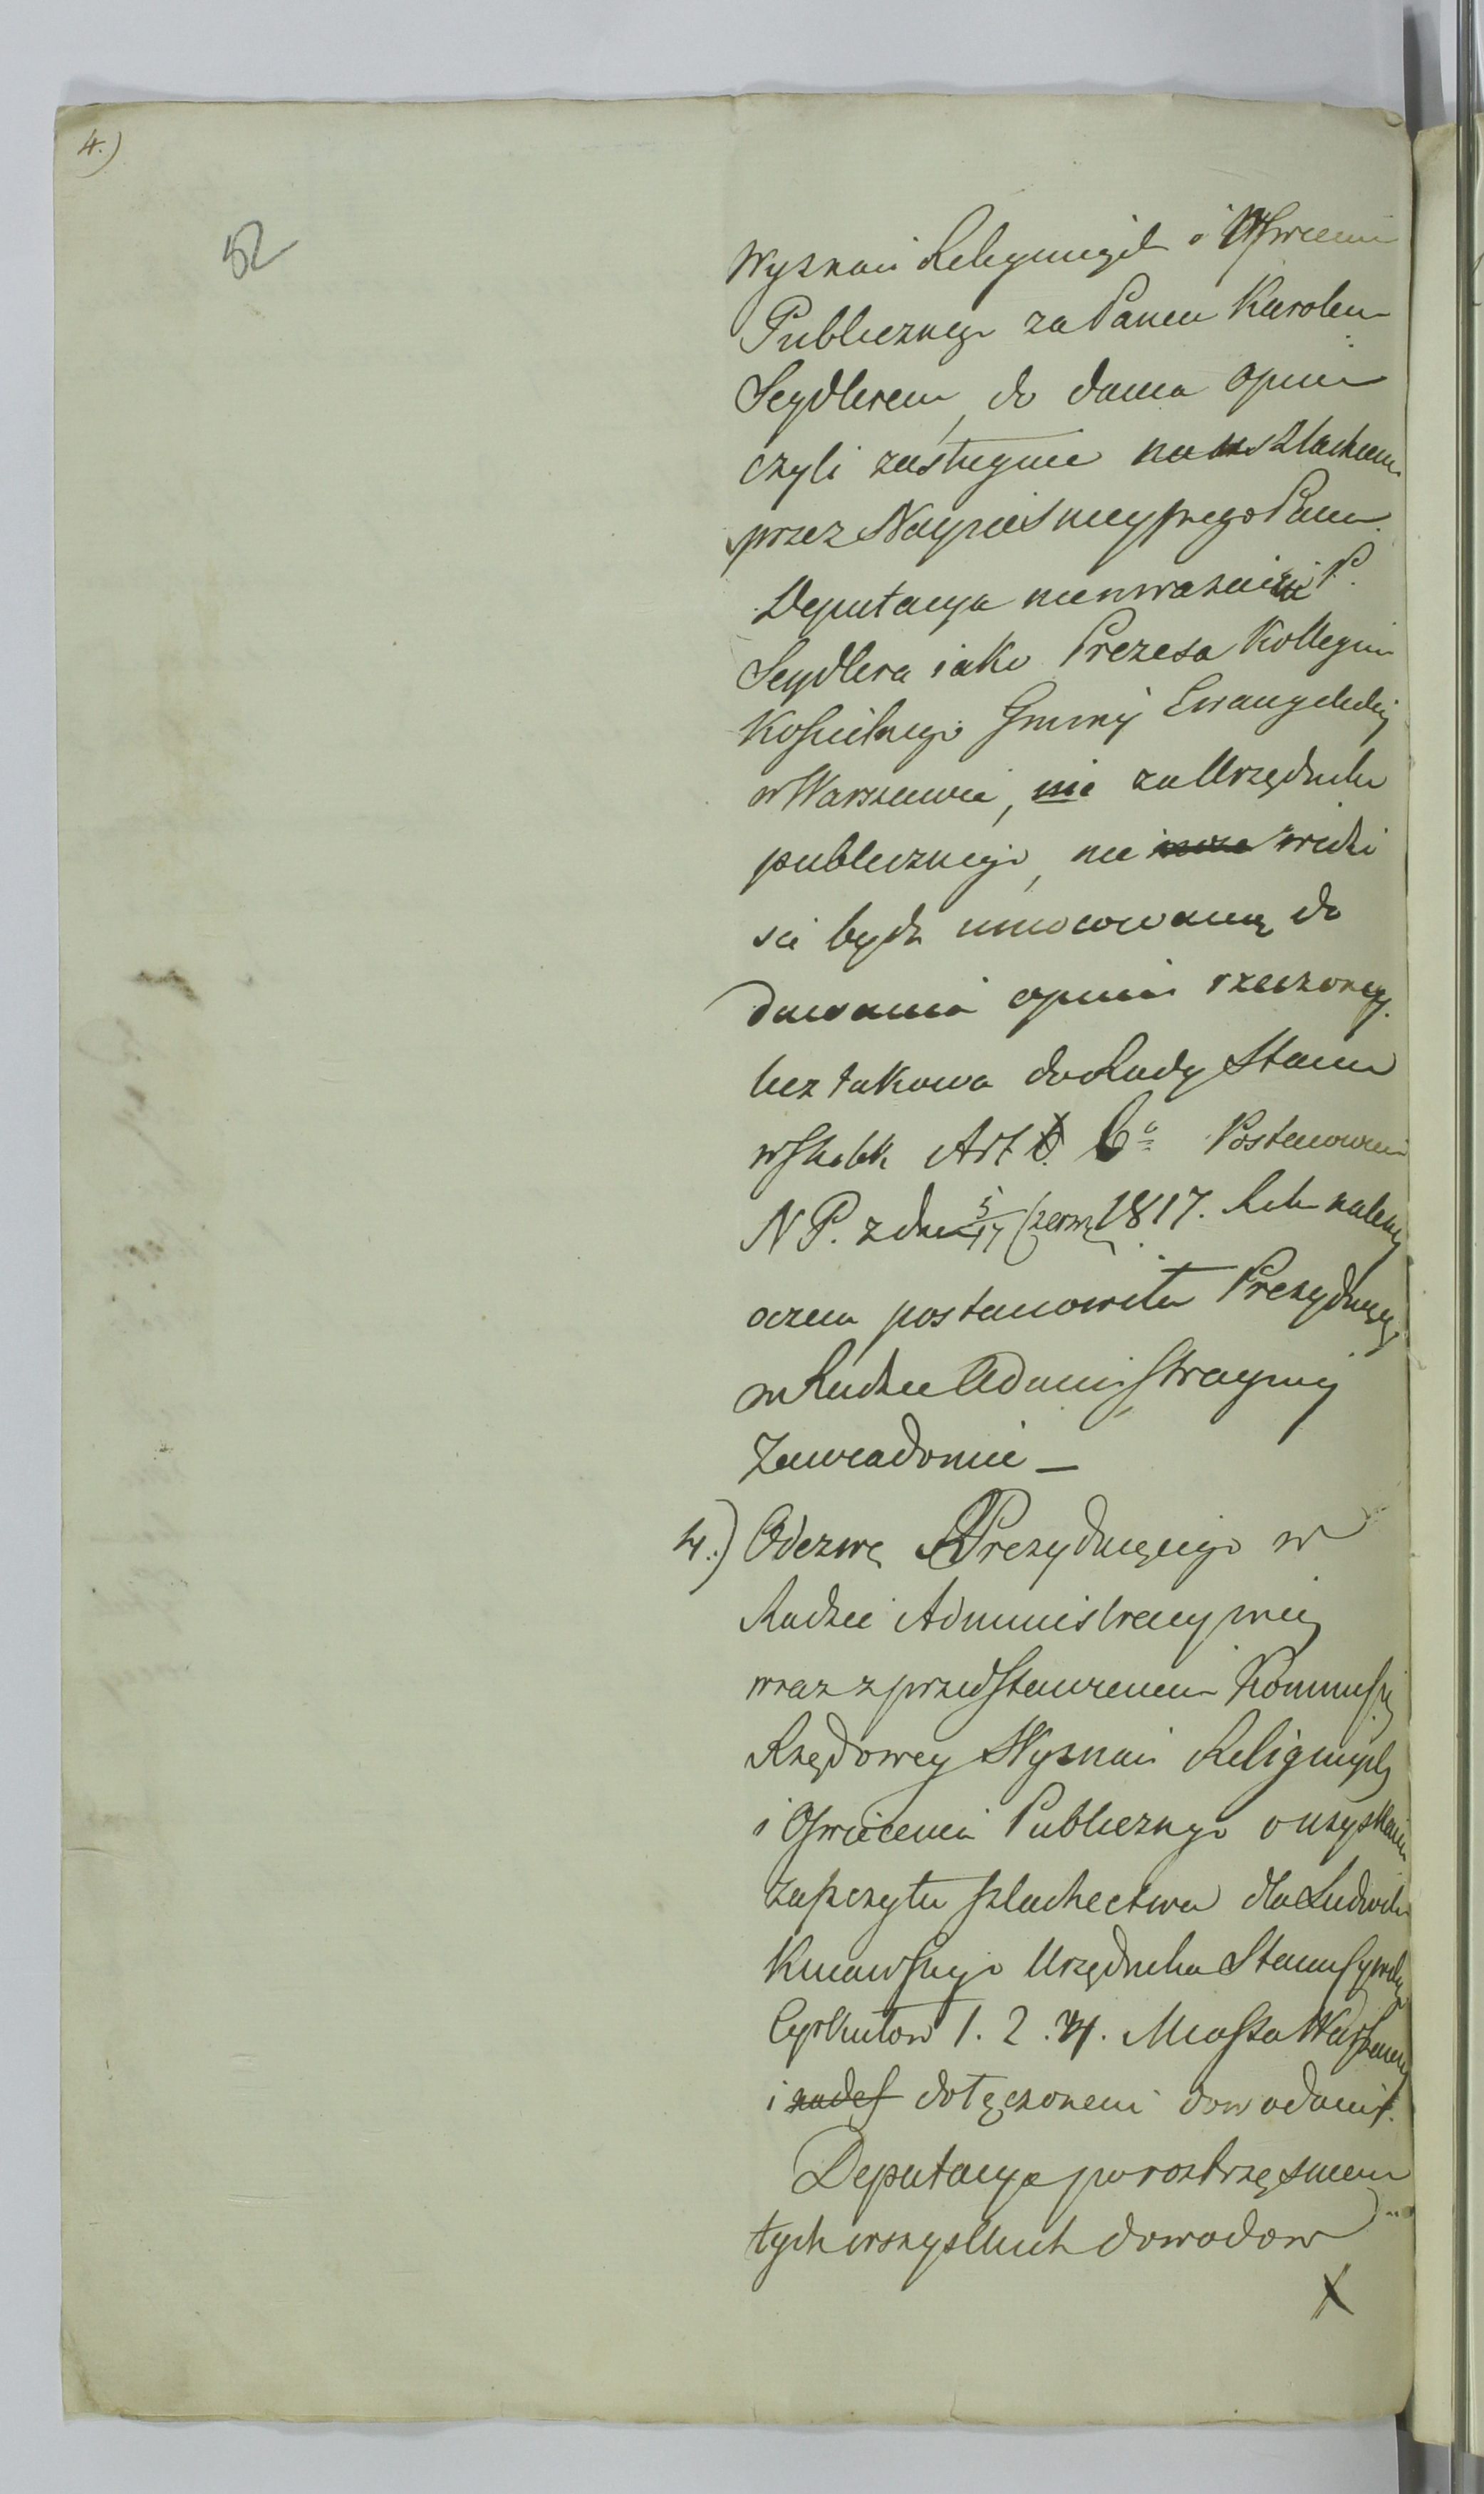 4.)
52
Wyznań Religijnych i Oświecenia
Publicznego za Panem Karolem
Seydlerem, do dania opinii
czyli zasługuie na uszlachcenie
przez Nayiaśnieyszego Pana.
Deputacya nieuważaiąc P.
Seydlera iako Prezesa Kollegium
Kościelnego Gminy Ewangelickiey
w Warszawie, nie za Urzędnika
publicznego, nie widzi
się bydź umocowaną do
dawania opinii rzeczoney.
lecz takowa do Rady Stanu
w skutek Art 6o Postanowienia
N P. z dnia 5/17 Czerwca 1817. Roku należy
oczem postanowiła Prezyduiącego
w Radzie Administracyiney
Zawiadomić —
4.) Odezwę Prezyduiącego w
Radzie Administracyiney
wraz z przedstawieniem Kommissyi
Rządowey Wyznań Religiynych
i Oświecenia Publicznego o uzyskanie
zaszczytu szlachectwa dla Ludwika
Urzędnika Stanu Cywilnego
Cyrkułow 1. 2. 4. Miasta Warszawy
i dołączonemi dowodami.
Deputacya po roztrząśnieniu
tych wszystkich dowodow